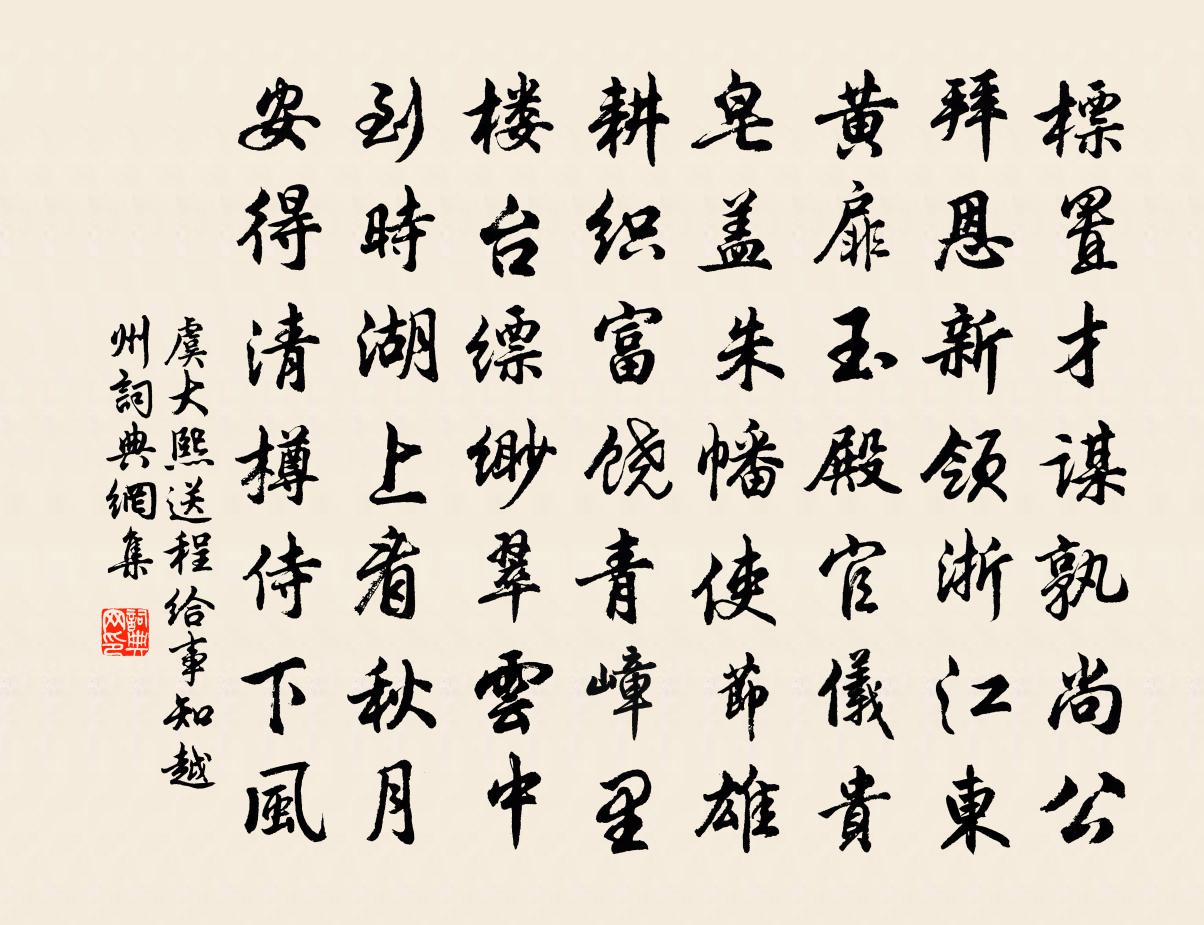 標置才謀孰尚公
拜恩新領浙江東
黄扉玉殿官儀貴
皂盖朱幡使節雄
耕织富饶青嶂里
楼台缥缈翠雲中
到時湖上看秋月
安得清樽侍下風
虞大熙送程給事知越
州詞典網集
詞典网印